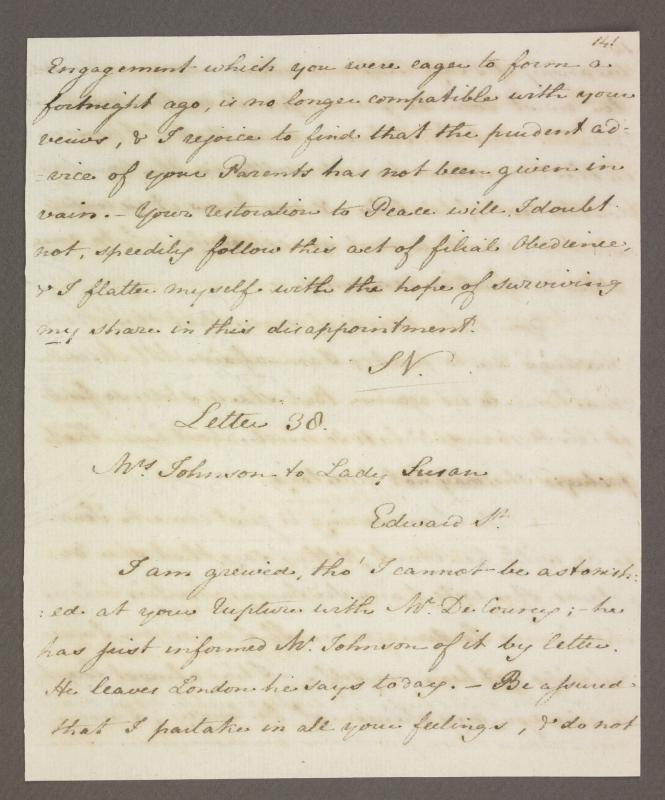 141
Engagement which you were eager to form a
fortnight ago, is no longer compatible with your
veiws, & I rejoice to find that the prudent ad-
-vice of your Parents has not been given in
vain. - Your restoration to Peace will, I doubt
not, speedily follow this act of filial Obedience,
& I flatter myself with the hope of surviving
my share in this disappointment.
S V.
Letter 38.
Mrs Johnson to Lady Susan
Edward St.
I am greived, tho' I cannot be astonish:
:ed at your rupture with Mr. De Courcy; - he
has just informed Mr. Johnson of it by letter.
He leaves London he says today. - Be assured
that I partake in all your feelings, & do not